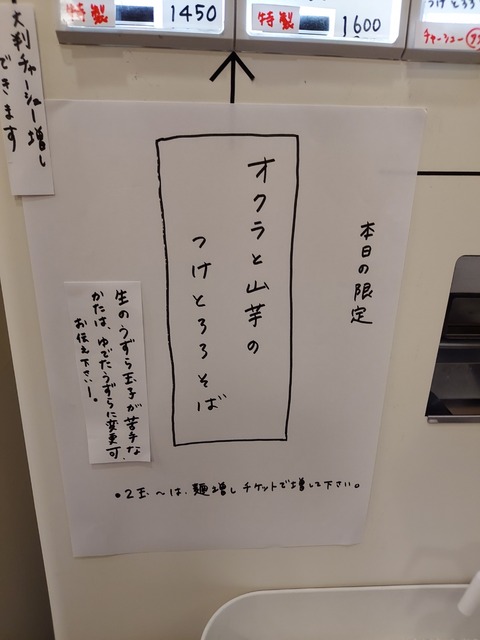 特製 1450
特製 1600
つけとろろ
チャーシュー
大判チャーシュー増し
できます
本日の限定
オクラと山芋の
つけとろろそば
生のうずら玉子が苦手な
かたは、ゆでたうずらに変更可。
お伝え下さいー。
•2玉〜は、麺増しチケットで増して下さい。